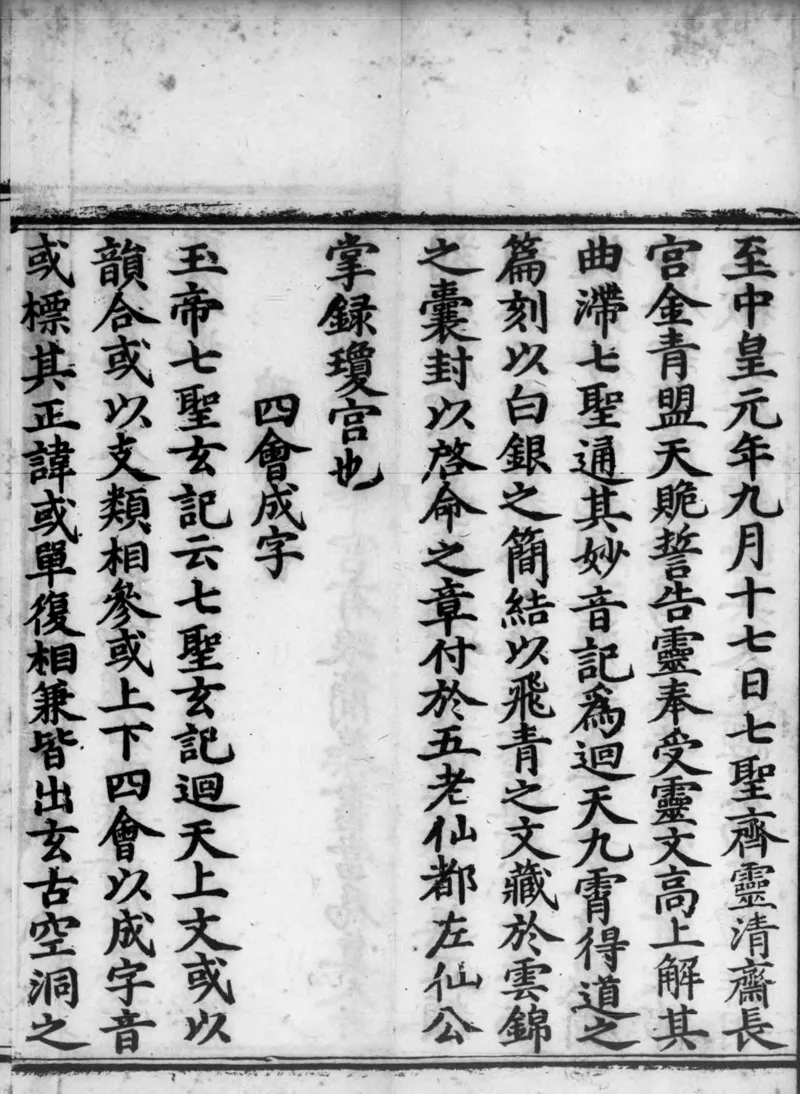 至中皇元年九月十七日七聖齊靈清齋長
宮金青盟天貺誓告靈奉受靈文高上解其
曲滯七聖通其妙音記爲迴天九霄得道之
篇刻以白銀之簡結以飛青之文藏於雲錦
之囊封以啓命之章付於五老仙都左仙公
掌録瓊宮也
四會成字
玉帝七聖玄記云七聖玄記迴天上文或以
韻合或以支類相參或上下四會以成字音
或標其正諱或單復相兼皆出玄古空洞之